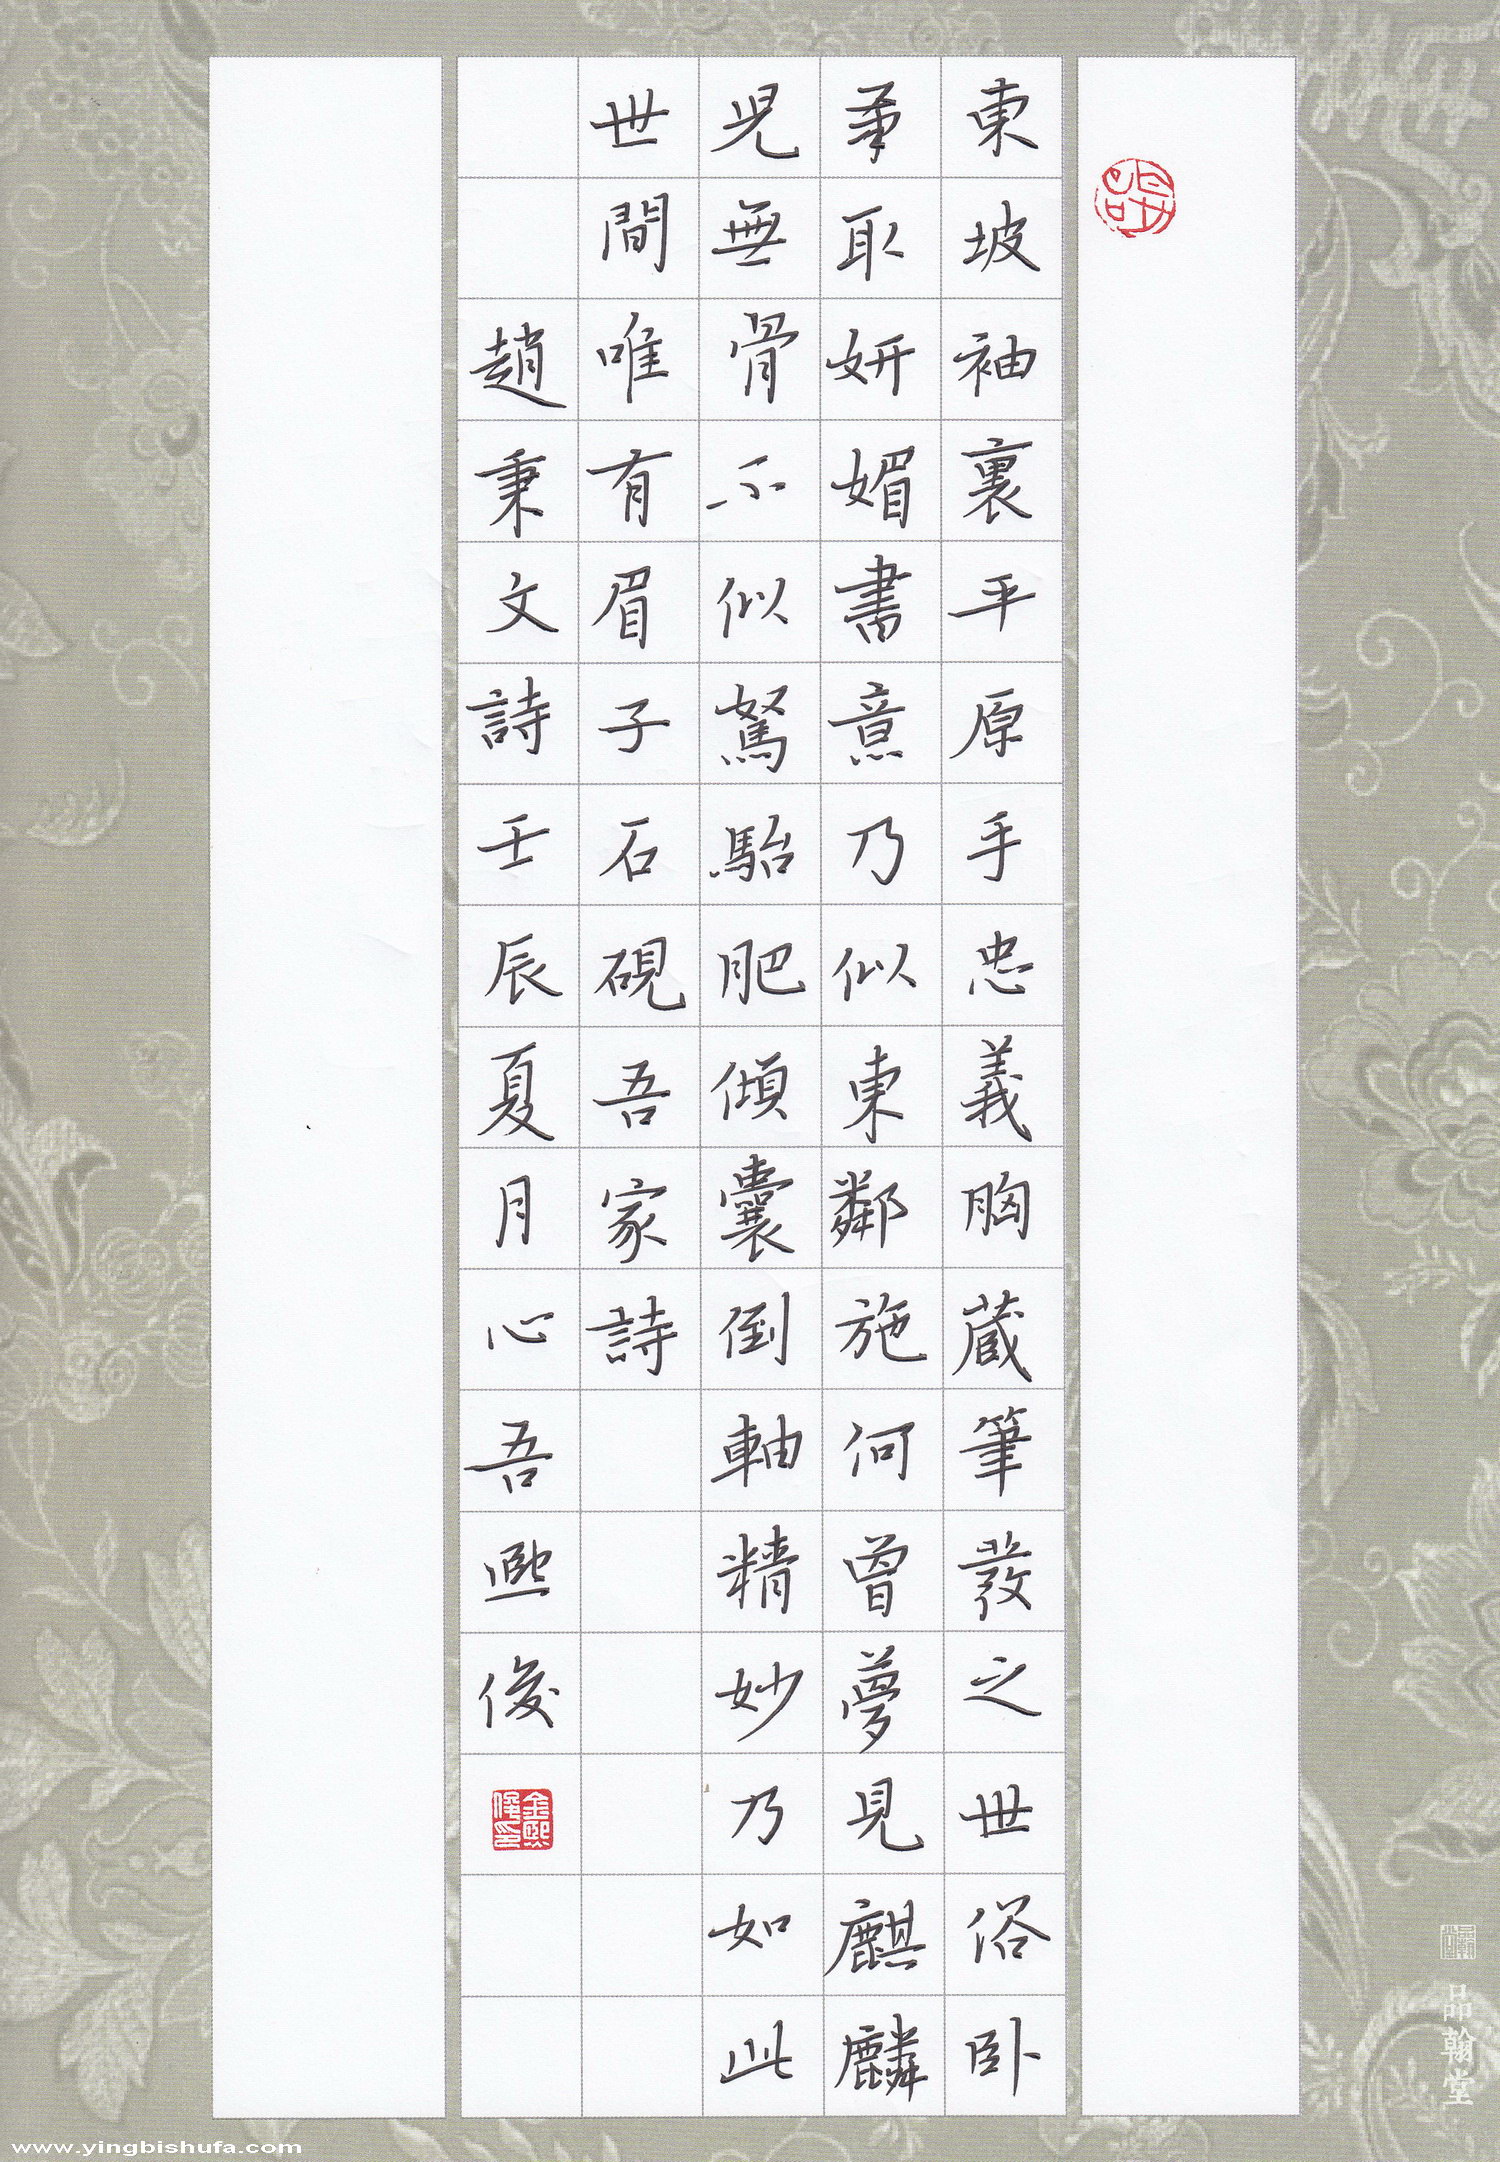 東坡袖裏平原手忠義胸蔵筆發之世俗卧
筆取妍媚書意乃似東鄰施何曾夢見麒麟
児無骨不似駑駘肥傾囊倒軸精妙乃如此
世間唯有眉子石硯吾家詩
趙秉文詩壬辰夏月心吾熙俊
金熙俊印
品翰堂
www.yingbishufa.com